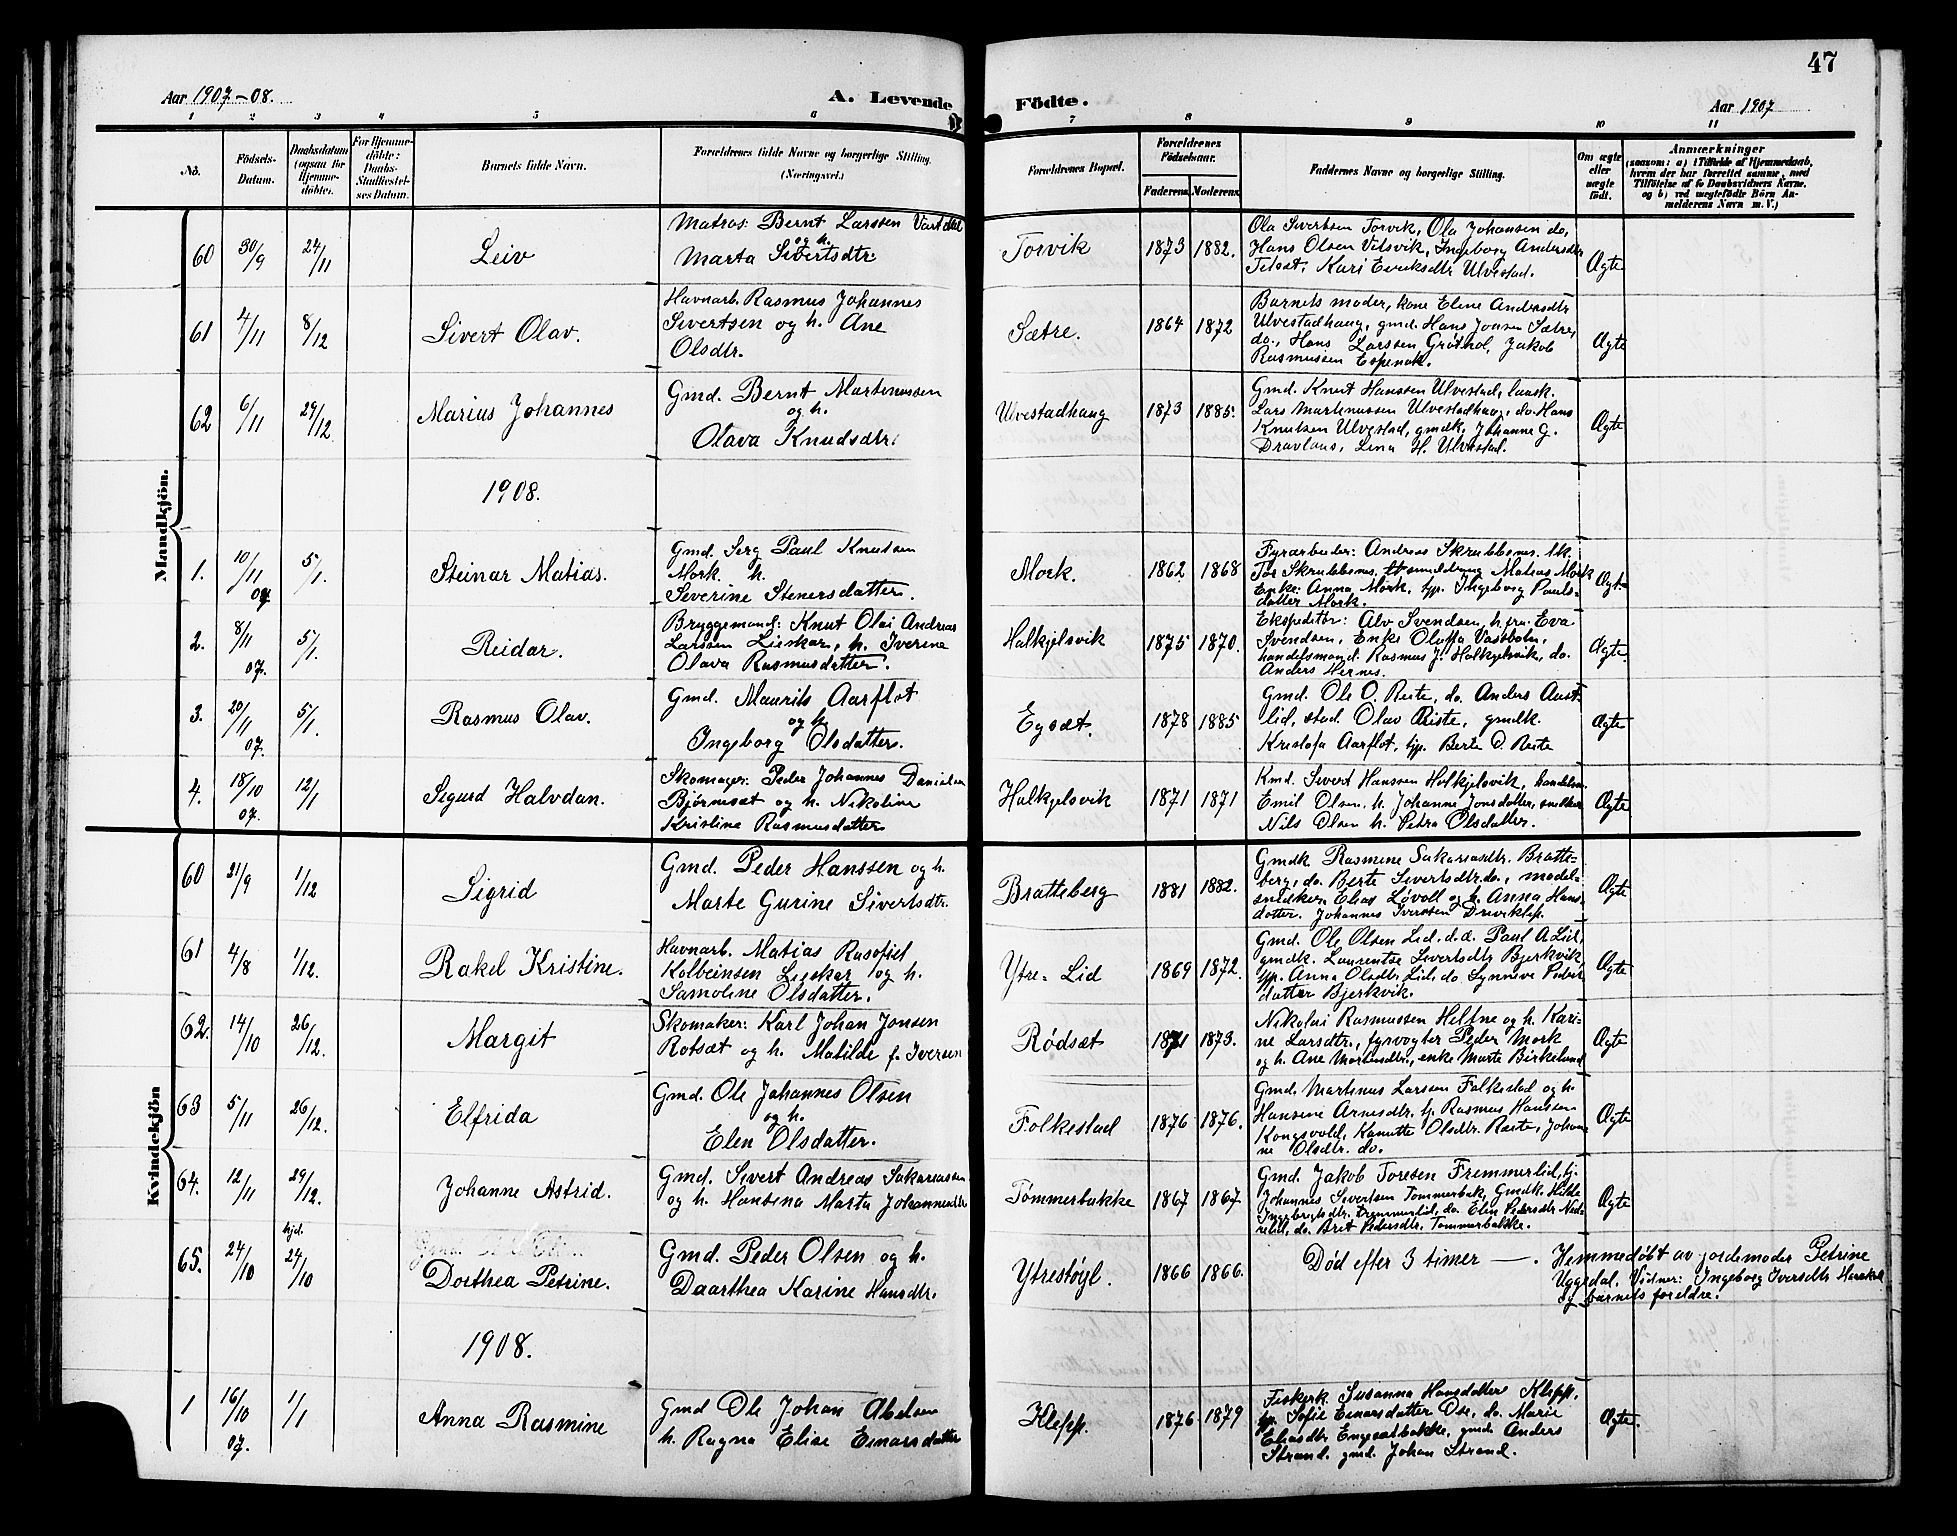 47
Aar 1907-08.
A. Levende Födte.
Aar 1907
1 2 3 4 5 6 7 8 9 10 11
No.
Födsels-Datum.
Daabsdatum (ogsaa for Hjemmedöbte).
For Hjemmedöbte: Daabs-Stadfæstelses Datum.
Barnets fulde Navn.
Forældrenes fulde Navne og borgerlige Stilling. (Næringsvei.)
Forældrenes Bopæl.
Forældrenes Födselsaar.
Faderens. Moderens.
Faddernes Navne og borgerlige Stilling.
Om ægte eller uægte født.
Anmærkninger
(saasom: a) i Tilfælde af Hjemmedaab, hvem der har forrettet samme, med Tilföielse af to Daabsvidners Navne, og b) ved uægtefödte Börn Anmelderens Navn m. V.)
Mandkjön.
60 30/9 24/11 Leiv
Matros: Bernt Larssen Vartdal
og h.
Marta Sivertsdtr.
Torvik 1873 1882.
Ola Sivertsen Torvik, Ola Johansen do,
Hans Olsen Vilsvik, Ingeborg Andersdtr
Kari Eeriksdtr Ulvestad.
Ægte
61 4/11 8/12 Sivert Olav.
Havnarb. Rasmus Johannes
Sivertsen og h. Ane
Olsdtr.
Sætre. 1864 1872
Barnets moder, kone Eline Andersdtr
Ulvestadhaug, gmd. Hans Jonsen Sætre,
do., Hans Larssen Grøthol, Jakob
Rasmussen Espenak.
Ægte
62 6/11 29/12 Marius Johannes
Gmd. Bernt Martinussen
og h.
Olava Knudsdtr.
Ulvestadhaug 1873 1885.
Gmd. Knut Hanssen Ulvestad, laask.
Lars Martinussen Ulvestadhaug, do. Hans
Knutsen Ulvestad, gmdk. Johanne G.
Dravlaus, Lina H. Ulvestad.
Ægte
1908.
1. 10/11 07 5/1. Steinar Matias.
Gmd. Serg Paul Knutsen
Mork. h.
Severine Stenersdatter.
Mork. 1862 1868
Fyrarbeider: Andreas Skrubbenes. tk.
Tor Skrubbenes. Matias Mork
Enke: Anna Mork, tjp. Ingeborg Pauls-
datter Mork.
Ægte
2. 8/11 07. 5/1. Reidar.
Bryggemand: Knut Olai Andreas
Larssen Lieskar, h. Iverine
Olava Rasmusdatter.
Halkjelsvik 1875 1870.
Ekspeditör: Alv Svendsen, h. fru Eva
Svendsen, Enke Oluffa Vassbotn,
handelsmand. Rasmus J. Halkjelsvik, do.
Anders Hernes.
Ægte.
3. 20/11 07. 5/1. Rasmus Olav.
Gmd. Maurits Aarflot
og h.
Ingeborg Olsdatter.
Egsæt. 1878 1885
Gmd. Ole O. Reite, do. Anders Aust-
lid, stud. Olav Riste, gmdk.
Kristofa Aarflot, tjp. Berte O. Reite
Ægte
4. 18/10 07. 12/1 Sigurd Halvdan.
Skomager: Peder Johannes Danielsen
Bjørnesæt og h. Nikoline
Kristine Rasmusdatter
Halkjelsvik 1871 1871
Kmd. Sivert Hanssen Halkjelsvik, handelsm.
Emil Olsen, h. Johanne Jonsdatter, snedker
Nils Olsen h. Petra Olsdatter.
Ægte
Kvindekjön
60 21/9 1/12 Sigrid
Gmd. Peder Hanssen og h.
Marte Gurine Sivertsdtr.
Bratteberg 1881 1882.
Gmdk Rasmine Sakariasdtr. Bratte-
berg, do. Berte Sivertsdtr. do., model-
snidker. Elias Løvoll og h. Anna Hans-
datter. Johannes Iversen Driveklep.
Ægte
61 4/8 1/12. Rakel Kristine.
Havnarb. Matias
Kolbeinsen Lieskar og h.
Samoline Olsdatter.
Ytre-Lid 1869 1872.
Gmd. Ole Olsen Lid. d.d. Paul A. Lid,
gmdk. Laurentse Sivertsdtr Bjerkvik,
tjp. Anna Olsdtr. Lid. do Synneve Peder
datter Bjerkvik.
Ægte
62. 14/10 26/12. Margit
Skomaker: Karl Johan Jonsen
Rotsæt og h. Matilde f. Iversen
Rødsæt 1871 1873.
Nikolai Rasmussen Heltne og h. Kari-
ne Larsdtr., fyrvogter Peder Mork
og h. Ane Martinsdtr., enke Marte Birkelund
Ægte
63 5/11 26/12. Elfrida
Gmd. Ole Johannes Olsen
og h.
Elen Olsdatter.
Folkestad 1876 1876.
Gmd. Martinus Larssen Folkestad og h.
Hansine Arnesdtr. tj. Rasmus Hanssen
Kongsvold, Kanutte Olsdtr. Reite, Johan-
ne Olsdtr. do.
Ægte
64. 12/11 29/12. Johanne Astrid.
Gmd. Sivert Andreas Sakariassen
og h. Hansena Marta Johannesdtr
Tommerbakke 1867 1867
Gmd. Jakob Toresen Fremmerlid, tj.
Johannes Sivertsen Tommerbak, Gmdk. Hilde
Ingebrigtsdtr. Fremmerlid, do. Elen Pedersdtr Ned-
relid, do. Brit Pedersdtr. Tommerbakke.
Ægte
65. 24/10 hjd. 24/10
Dorthea Petrine.
Gmd. Peder Olsen og h.
Daarthea Karine Hansdtr.
Ytrestøyl. 1866 1866.
Død efter 3 timer —.
Hemmedøbt av jordemoder Petrine
Uggedal. Vidner: Ingeborg Iversdtr
og barnets foreldre.
1908.
1 16/10 07. 1/1 Anna Rasmine
Gmd Ole Johan Abelsen
h. Ragna Elise Einarsdatter
Klepp. 1876 1879
Fiskerk. Susanna Hansdatter Klepp.
tjp. Sofie Einarsdatter Ose, do. Marie
Eliasdtr Engesetbakke, gmd Anders
Strand. gmd. Johan Strand.
Ægte.